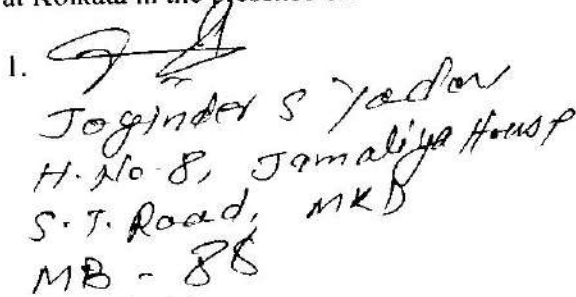 at Kolkata in the presence of
1.
Joginder S Yadav
H. No 8, Jamaliya House
S. T. Road, MKD
MB - 88